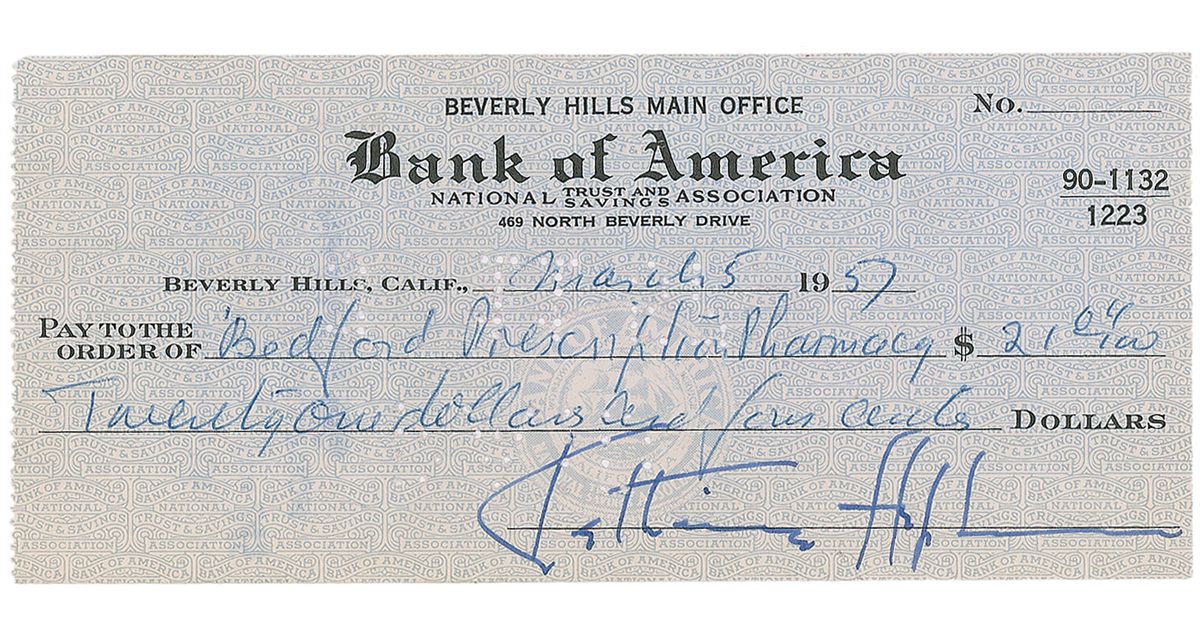 BEVERLY HILLS MAIN OFFICE
No.
Bank of America
NATIONAL TRUST AND SAVINGS ASSOCIATION
469 NORTH BEVERLY DRIVE
90-1132
1223
BEVERLY HILLS, CALIF., March 5 1957
PAY TO THE ORDER OF Bedford Prescription Pharmacy $ 21 04/100
Twenty one dollars and four cents DOLLARS
Katharine Hepburn